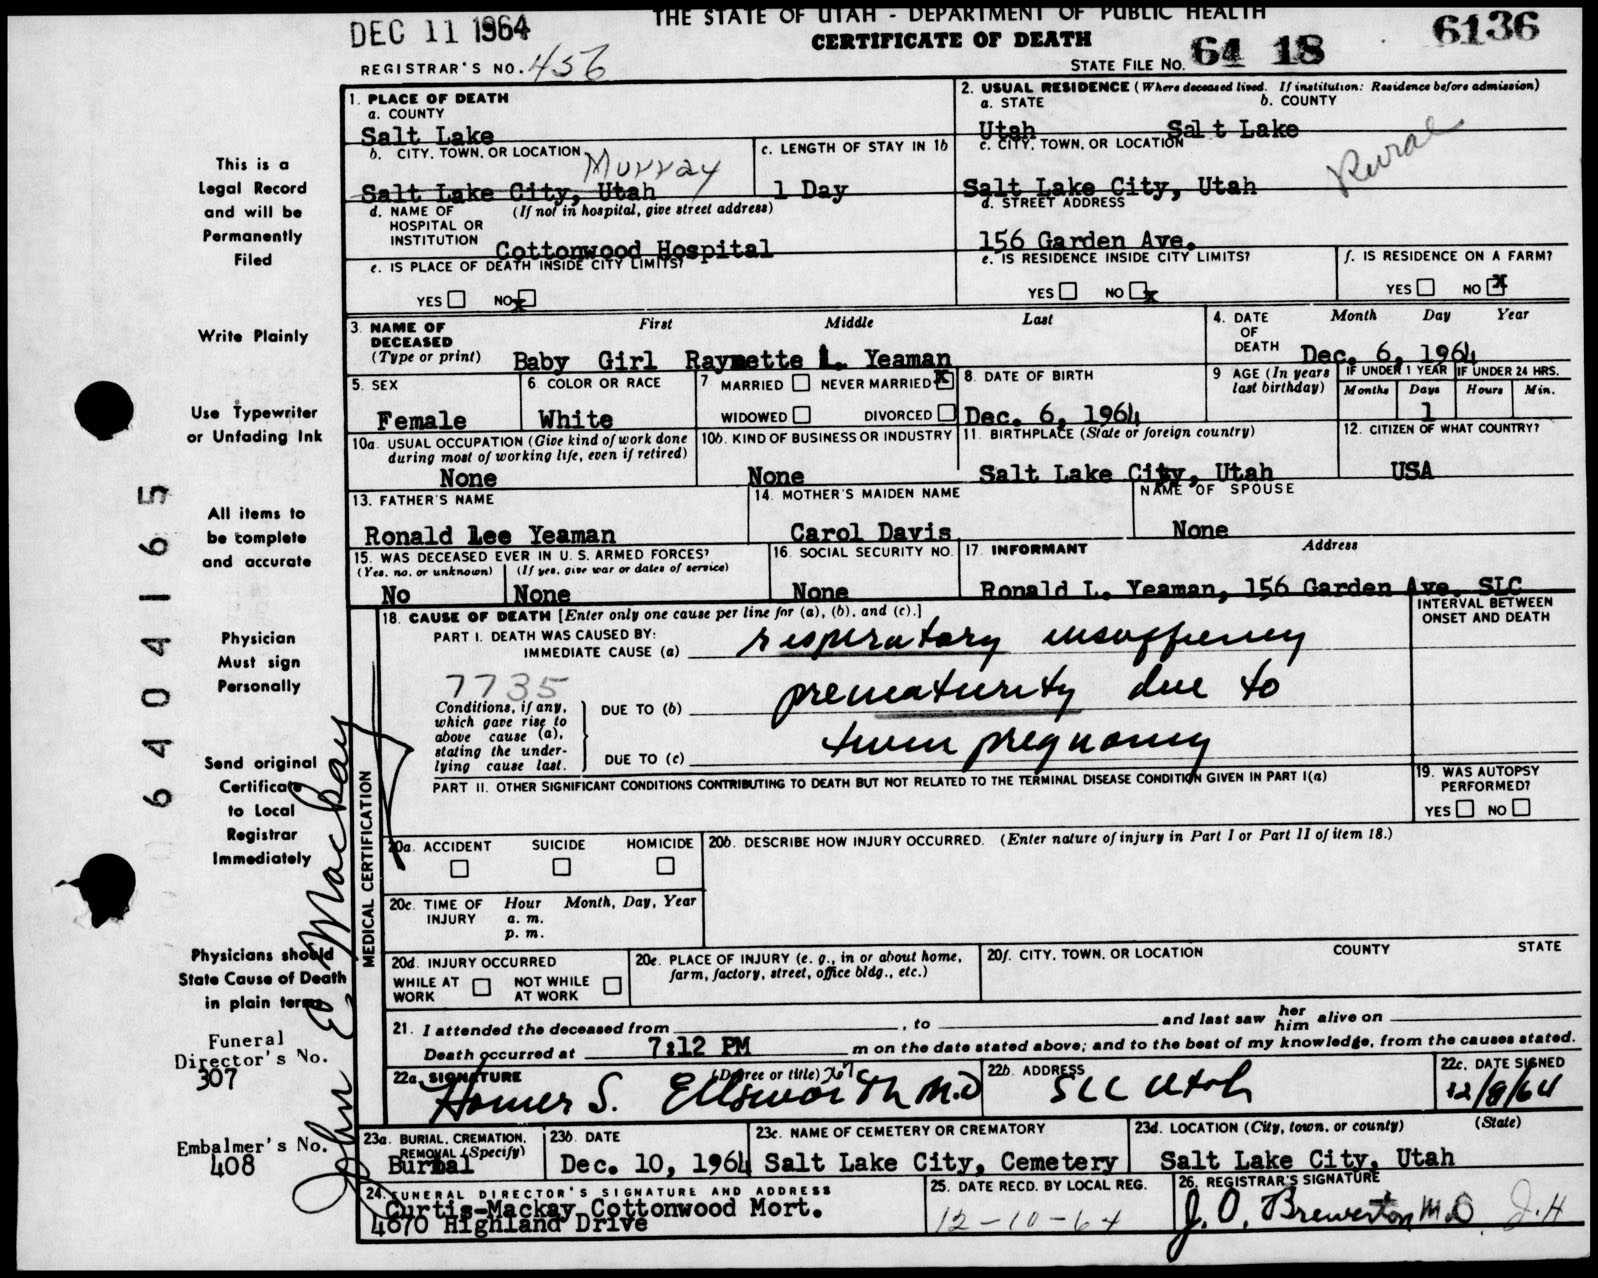 DEC 11 1964
THE STATE OF UTAH - DEPARTMENT OF PUBLIC HEALTH
CERTIFICATE OF DEATH
6136
REGISTRAR'S NO. 456
STATE FILE NO. 64 18
1. PLACE OF DEATH
a. COUNTY
Salt Lake
2. USUAL RESIDENCE (Where deceased lived. If institution: Residence before admission)
a. STATE b. COUNTY
Utah Salt Lake
b. CITY, TOWN, OR LOCATION Murray
Salt Lake City, Utah
c. LENGTH OF STAY IN 1b
1 Day
c. CITY, TOWN, OR LOCATION
Salt Lake City, Utah
Rural
d. NAME OF HOSPITAL OR INSTITUTION (If not in hospital, give street address)
Cottonwood Hospital
d. STREET ADDRESS
156 Garden Ave.
e. IS PLACE OF DEATH INSIDE CITY LIMITS?
YES NO x
e. IS RESIDENCE INSIDE CITY LIMITS?
YES NO x
f. IS RESIDENCE ON A FARM?
YES NO x
3. NAME OF DECEASED (Type or print)
First Middle Last
Baby Girl Raynette L. Yeaman
4. DATE OF DEATH
Month Day Year
Dec. 6, 1964
5. SEX
Female
6. COLOR OR RACE
White
7 MARRIED NEVER MARRIED x
WIDOWED DIVORCED
8. DATE OF BIRTH
Dec. 6, 1964
9 AGE (In years last birthday)
IF UNDER 1 YEAR IF UNDER 24 HRS.
Months Days Hours Min.
1
10a. USUAL OCCUPATION (Give kind of work done during most of working life, even if retired)
None
10b. KIND OF BUSINESS OR INDUSTRY
None
11. BIRTHPLACE (State or foreign country)
Salt Lake City, Utah
12. CITIZEN OF WHAT COUNTRY?
USA
13. FATHER'S NAME
Ronald Lee Yeaman
14. MOTHER'S MAIDEN NAME
Carol Davis
NAME OF SPOUSE
None
15. WAS DECEASED EVER IN U. S. ARMED FORCES?
(Yes, no, or unknown) (If yes, give war or dates of service)
No None
16. SOCIAL SECURITY NO.
None
17. INFORMANT Address
Ronald L. Yeaman, 156 Garden Ave. SLC
18. CAUSE OF DEATH [Enter only one cause per line for (a), (b), and (c).]
INTERVAL BETWEEN ONSET AND DEATH
PART I. DEATH WAS CAUSED BY:
IMMEDIATE CAUSE (a) respiratory insuffiency
7735
Conditions, if any, which gave rise to above cause (a), stating the underlying cause last.
DUE TO (b) prematurity due to
DUE TO (c) twin pregnancy
PART II. OTHER SIGNIFICANT CONDITIONS CONTRIBUTING TO DEATH BUT NOT RELATED TO THE TERMINAL DISEASE CONDITION GIVEN IN PART I(a)
19. WAS AUTOPSY PERFORMED?
YES NO
MEDICAL CERTIFICATION
20a. ACCIDENT SUICIDE HOMICIDE
20b. DESCRIBE HOW INJURY OCCURRED. (Enter nature of injury in Part I or Part II of item 18.)
20c. TIME OF INJURY Hour Month, Day, Year
a. m.
p. m.
20d. INJURY OCCURRED
WHILE AT WORK NOT WHILE AT WORK
20e. PLACE OF INJURY (e. g., in or about home, farm, factory, street, office bldg., etc.)
20f. CITY, TOWN, OR LOCATION COUNTY STATE
21. I attended the deceased from , to and last saw her him alive on
Death occurred at 7:12 PM m on the date stated above; and to the best of my knowledge, from the causes stated.
22a. SIGNATURE (Degree or title)
Homer S. Ellsworth M.D
22b. ADDRESS
SLC Utah
22c. DATE SIGNED
12/9/64
23a. BURIAL, CREMATION, REMOVAL (Specify)
Burial
23b. DATE
Dec. 10, 1964
23c. NAME OF CEMETERY OR CREMATORY
Salt Lake City, Cemetery
23d. LOCATION (City, town, or county) (State)
Salt Lake City, Utah
24. FUNERAL DIRECTOR'S SIGNATURE AND ADDRESS
Curtis-Mackay Cottonwood Mort.
4670 Highland Drive
25. DATE RECD. BY LOCAL REG.
12-10-64
26. REGISTRAR'S SIGNATURE
J. O. Brewerton M.D J.H
This is a
Legal Record
and will be
Permanently
Filed
Write Plainly
Use Typewriter
or Unfading Ink
All items to
be complete
and accurate
Physician
Must sign
Personally
Send original
Certificate
to Local
Registrar
Immediately
Physicians should
State Cause of Death
in plain terms
Funeral
Director's No.
307
Embalmer's No.
408
John E. Mackay
06404165